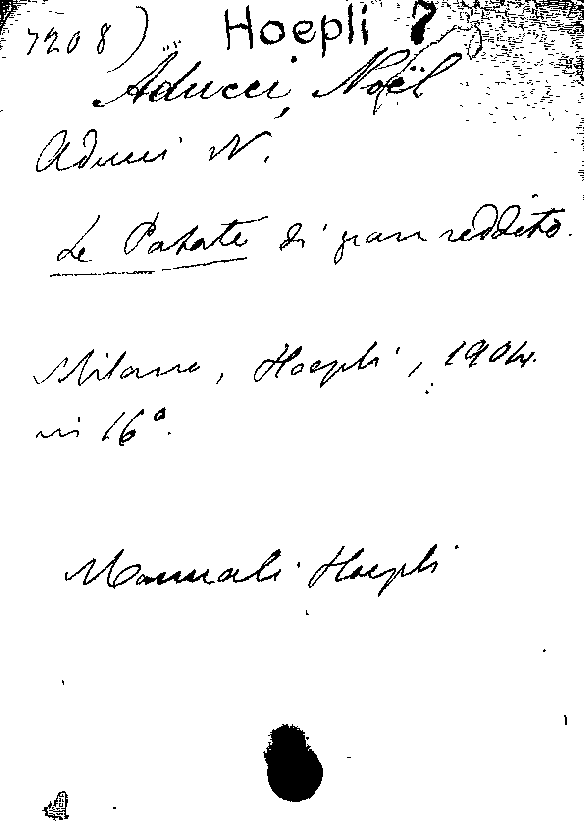 7208) Hoepli 7
Aducci, Noël
Aducci N.
Le Patate di gran reddito.
Milano, Hoepli, 1904.
in 16°.
Manuali Hoepli